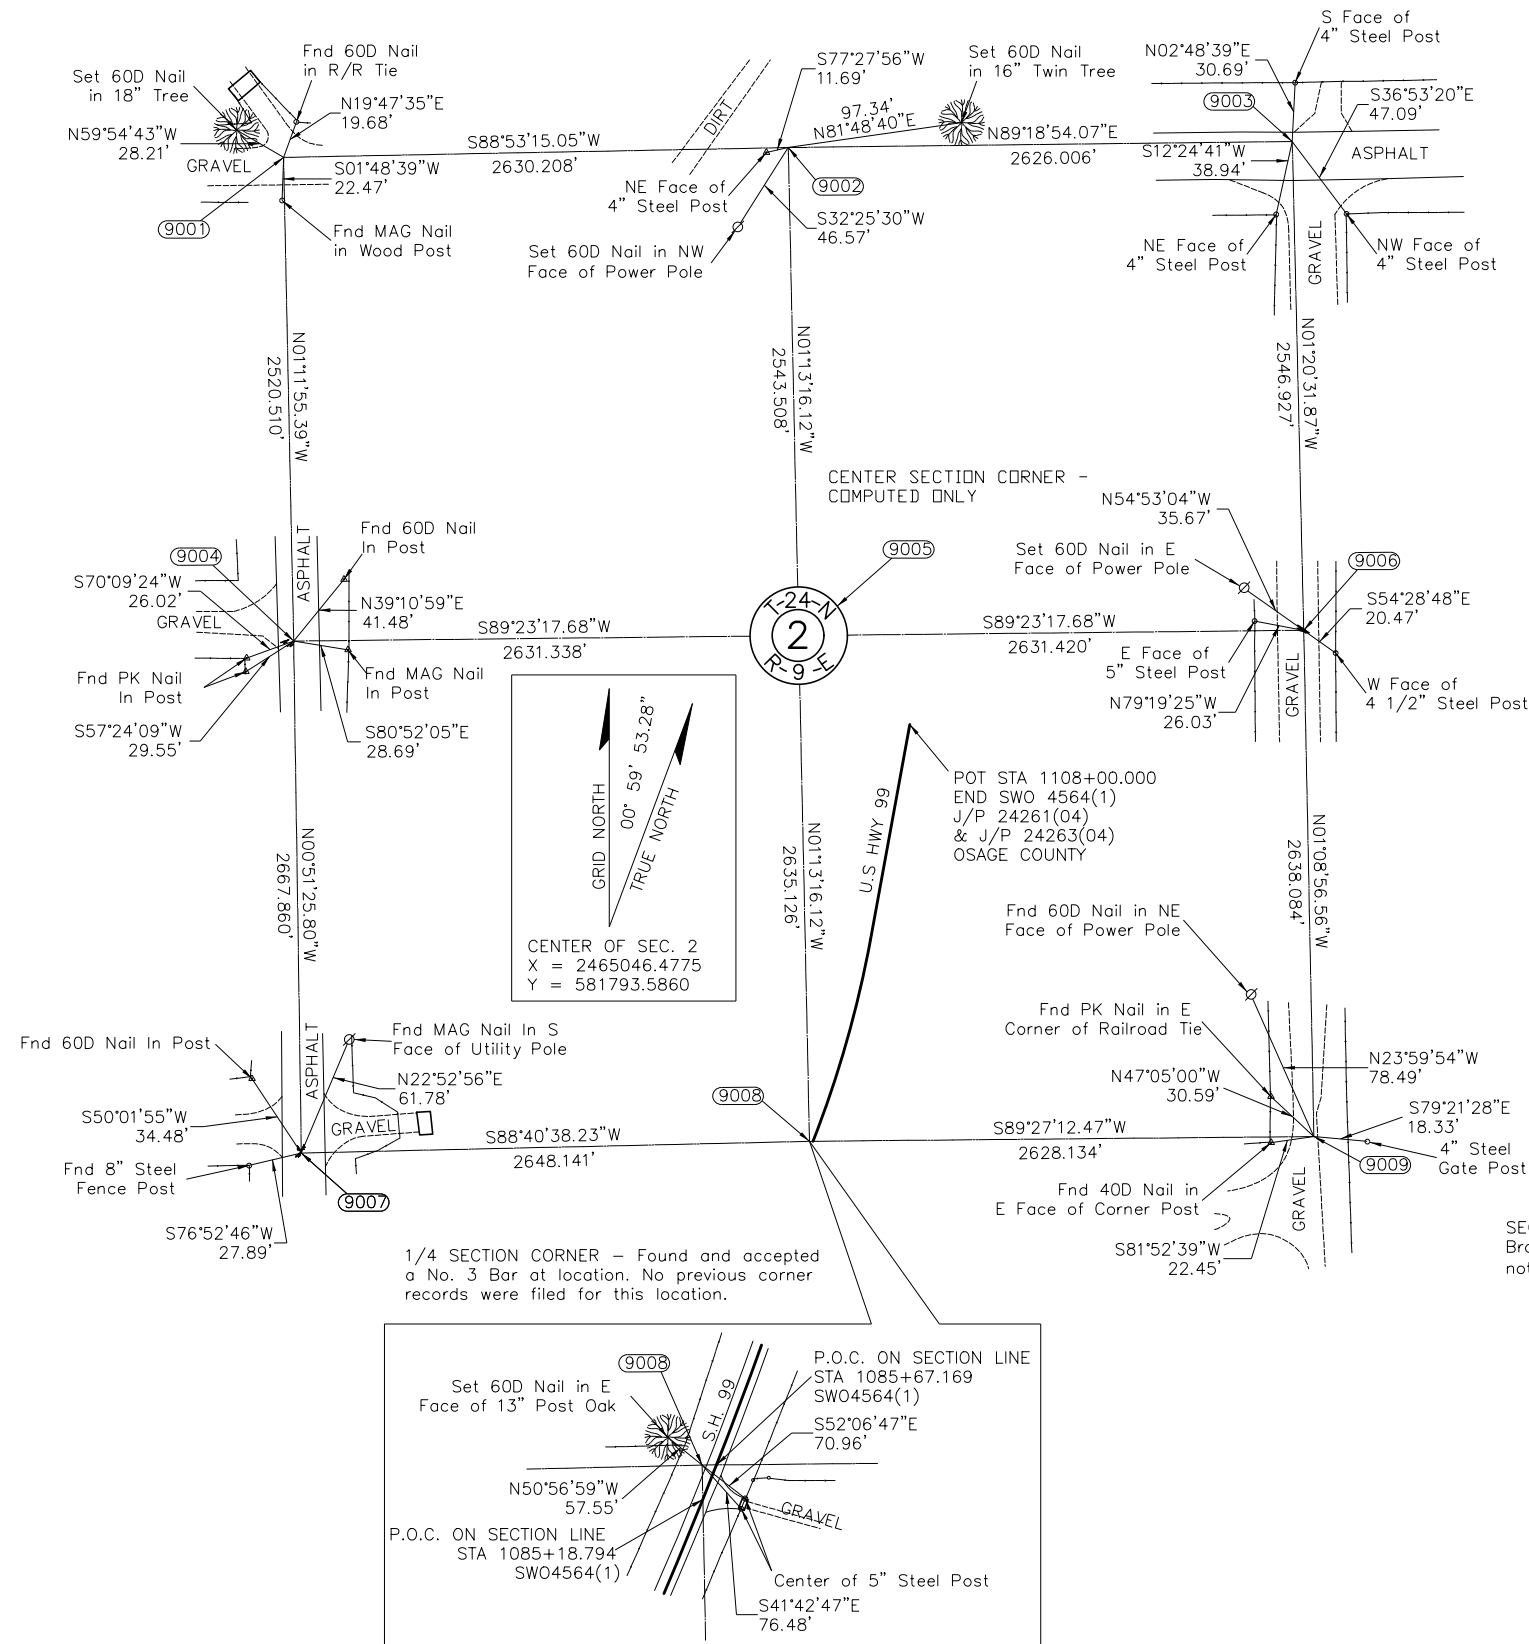 S Face of
4" Steel Post
Fnd 60D Nail
in R/R Tie
Set 60D Nail
in 18" Tree
N19°47'35"E
19.68'
N59°54'43"W
28.21'
GRAVEL
S01°48'39"W
22.47'
9001
Fnd MAG Nail
in Wood Post
S88°53'15.05"W
2630.208'
DIRT
S77°27'56"W
11.69'
97.34'
N81°48'40"E
Set 60D Nail
in 16" Twin Tree
NE Face of
4" Steel Post
9002
S32°25'30"W
46.57'
Set 60D Nail in NW
Face of Power Pole
N89°18'54.07"E
2626.006'
N02°48'39"E
30.69'
9003
S36°53'20"E
47.09'
S12°24'41"W
38.94'
ASPHALT
NE Face of
4" Steel Post
GRAVEL
NW Face of
4" Steel Post
N01°11'55.39"W
2520.510'
N01°13'16.12"W
2543.508'
N01°20'31.87"W
2546.927'
CENTER SECTION CORNER -
COMPUTED ONLY
9004
ASPHALT
Fnd 60D Nail
In Post
S70°09'24"W
26.02'
GRAVEL
N39°10'59"E
41.48'
S89°23'17.68"W
2631.338'
Fnd PK Nail
In Post
Fnd MAG Nail
In Post
S57°24'09"W
29.55'
S80°52'05"E
28.69'
9005
T-24-N
2
R-9-E
N54°53'04"W
35.67'
Set 60D Nail in E
Face of Power Pole
9006
S54°28'48"E
20.47'
S89°23'17.68"W
2631.420'
E Face of
5" Steel Post
N79°19'25"W
26.03'
GRAVEL
W Face of
4 1/2" Steel Post
GRID NORTH
00° 59' 53.28"
TRUE NORTH
CENTER OF SEC. 2
X = 2465046.4775
Y = 581793.5860
U.S HWY 99
POT STA 1108+00.000
END SWO 4564(1)
J/P 24261(04)
& J/P 24263(04)
OSAGE COUNTY
N00°51'25.80"W
2667.860'
N01°13'16.12"W
2635.126'
N01°08'56.56"W
2638.084'
Fnd 60D Nail in NE
Face of Power Pole
Fnd PK Nail in E
Corner of Railroad Tie
N23°59'54"W
78.49'
N47°05'00"W
30.59'
S79°21'28"E
18.33'
Fnd 60D Nail In Post
ASPHALT
Fnd MAG Nail In S
Face of Utility Pole
N22°52'56"E
61.78'
S50°01'55"W
34.48'
GRAVEL
Fnd 8" Steel
Fence Post
9007
S76°52'46"W
27.89'
S88°40'38.23"W
2648.141'
9008
S89°27'12.47"W
2628.134'
4" Steel
Gate Post
9009
Fnd 40D Nail in
E Face of Corner Post
GRAVEL
S81°52'39"W
22.45'
1/4 SECTION CORNER – Found and accepted
a No. 3 Bar at location. No previous corner
records were filed for this location.
9008
Set 60D Nail in E
Face of 13" Post Oak
S.H. 99
P.O.C. ON SECTION LINE
STA 1085+67.169
SWO4564(1)
S52°06'47"E
70.96'
N50°56'59"W
57.55'
GRAVEL
P.O.C. ON SECTION LINE
STA 1085+18.794
SWO4564(1)
Center of 5" Steel Post
S41°42'47"E
76.48'